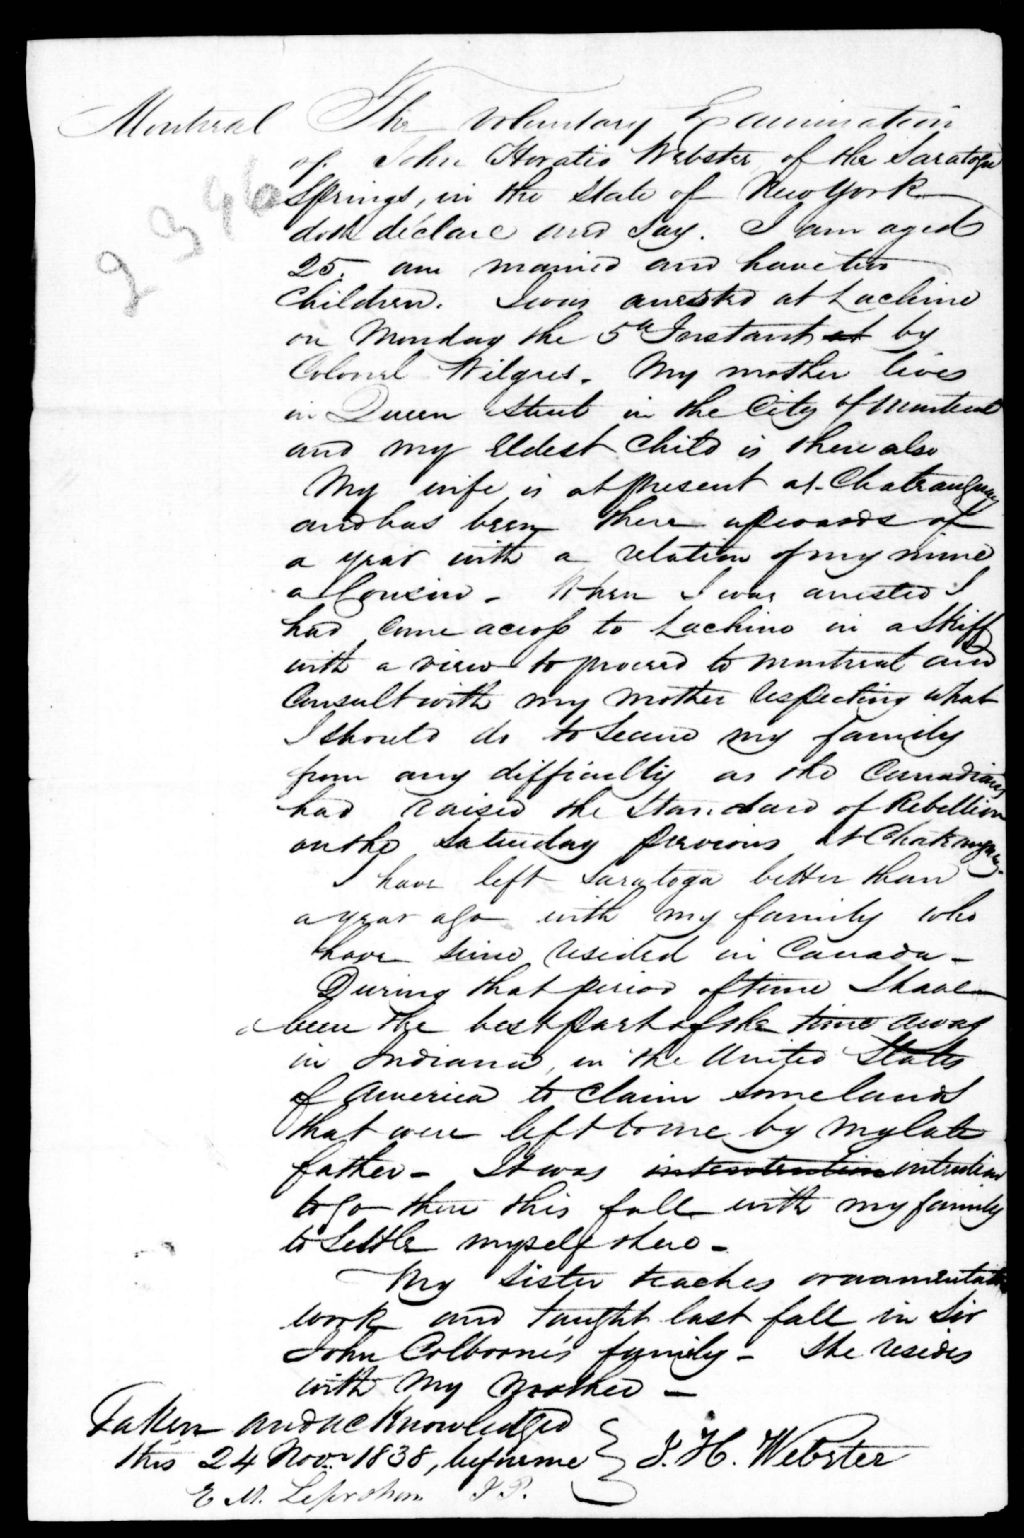 Montreal The Voluntary Examination
of John Horatio Webster, of the Saratoga
Springs, in the State of New York
2346
doth déclare and Say. I am aged
25. am married and have two
Children. I was arrested at Lachine
on Monday the 5th Instant at by
Colonel Wilgres. My mother lives
in Queen Street in the City of Montreal
and my Eldest Child is there also
My wife is at present at Chateauguay
and has been there upwards of
a year with a relation of my mine
a Cousin - When I was arrested I
had come across to Lachine in a Skiff
with a view to proceed to Montreal and
Consult with my mother respecting what
I should do to Secure my family
from any difficulty as the Canadians
had raised the Standard of Rebellion
on the Saturday previous at Chateauguay.
I have left Saratoga better than
a year ago with my family who
have since resided in Canada -
During that period of time I have
been the best part of the time away
in Indiana, in the United States
of America to claim some lands
that were left to me by my late
father - It was intention
to go there this fall with my family
to Settle myself there -
My Sister teaches ornamental
work and taught last fall in Sir
John Colborne's family - She resides
with my mother -
Taken and acknowledged
this 24 Nov. 1838, before me J. H. Webster
E M. Leprohon J. P.